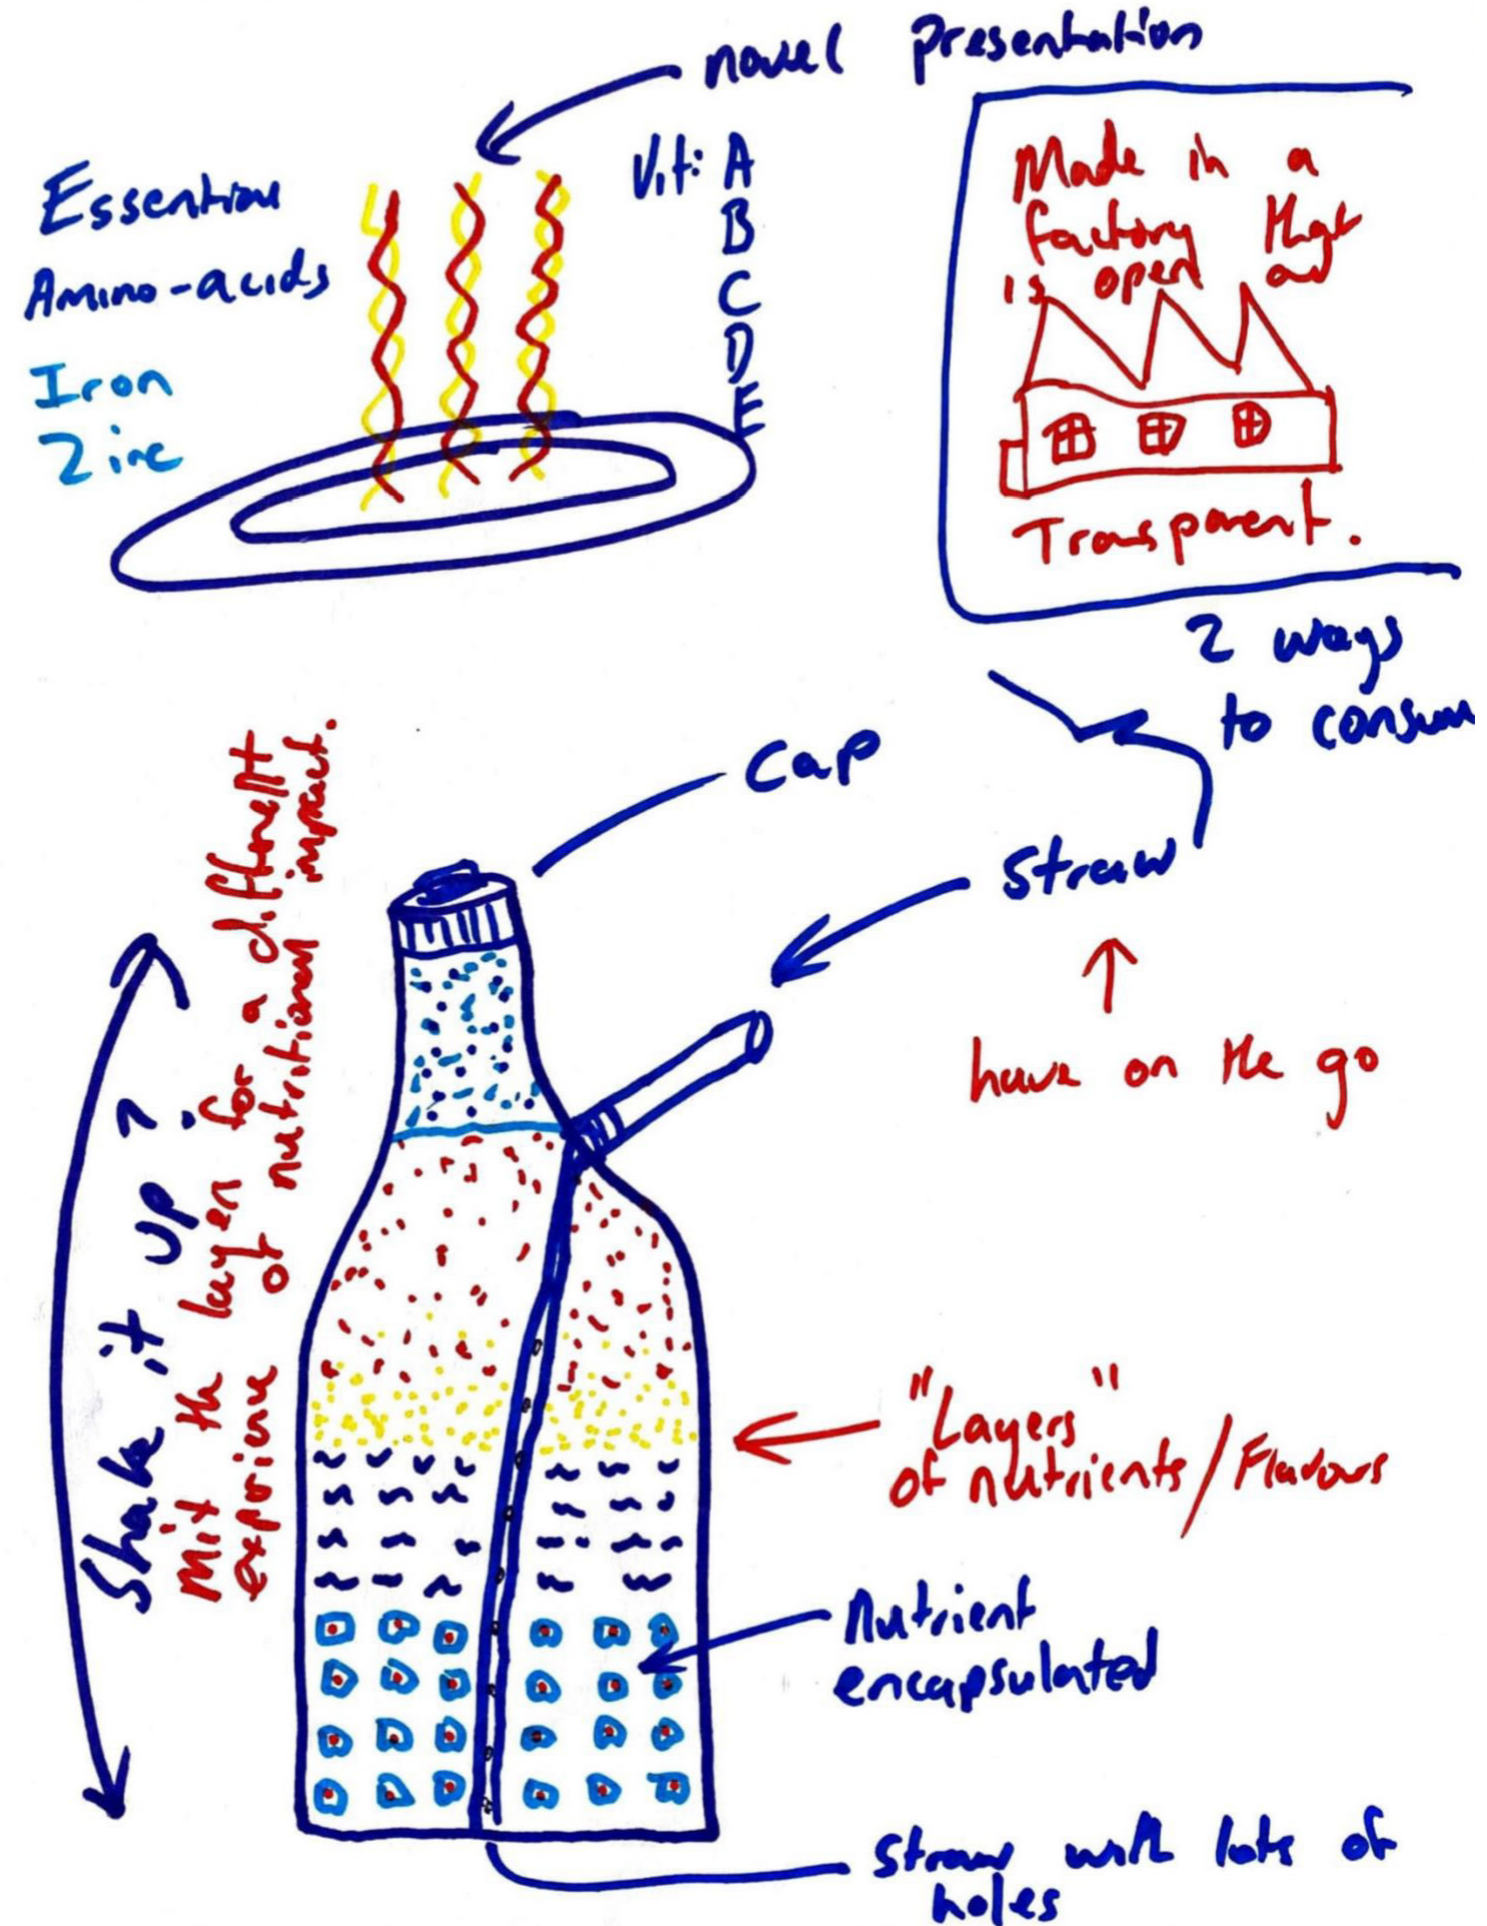 novel presentation
Essential
Amino-acids
Iron
Zinc
Vit: A
B
C
D
E
Made in a
factory that
is open and
Transparent.
2 ways
to consum
Cap
Straw
↑
have on the go
Shake it up?
Mix the layer for a different
experience of nutritional impact.
"Layers"
of nutrients/Flavours
Nutrient
encapsulated
Straw with lots of
holes